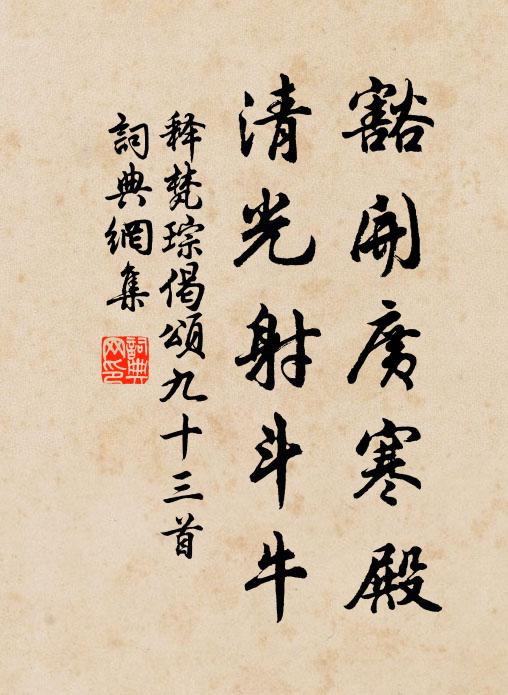 豁開廣寒殿
清光射斗牛
釋梵琮偈頌九十三首
詞典網集
詞典網印